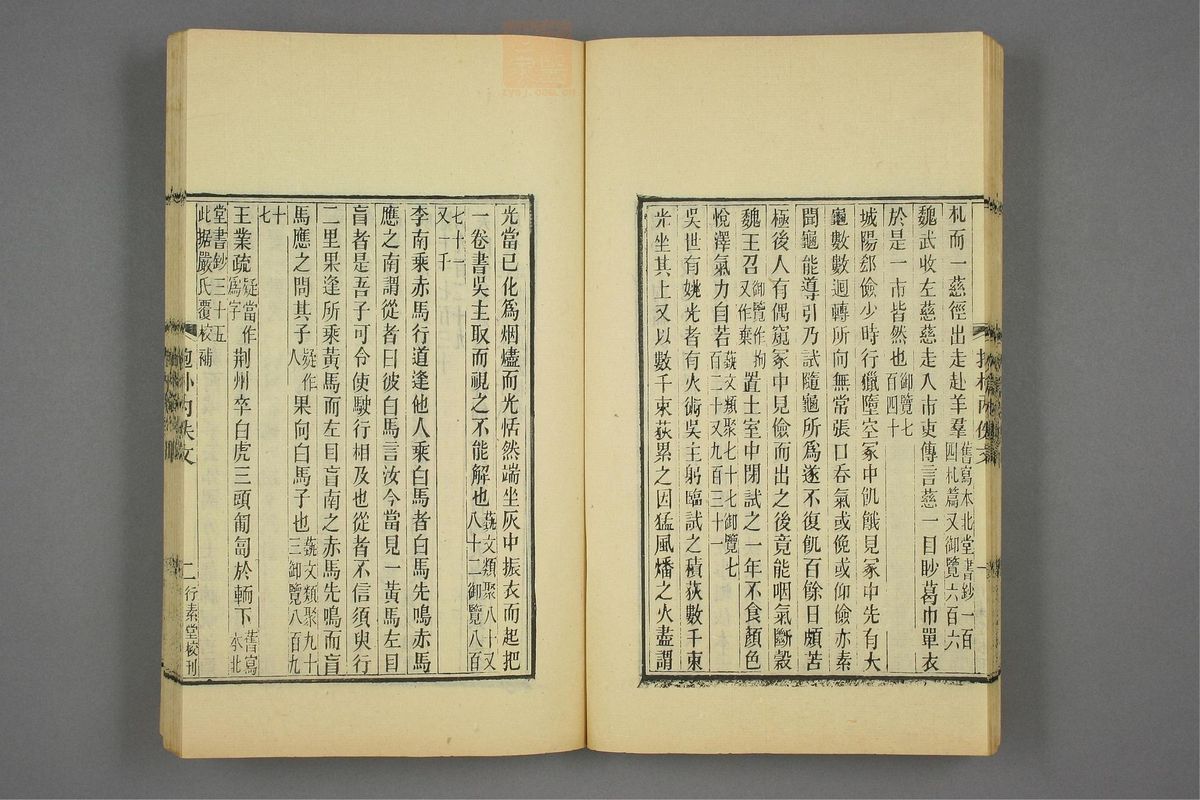 札而一慈徑出走赴羊羣舊寫本北堂書鈔一百四札篇又御覽六百六
魏武收左慈慈走入市吏傳言慈一目眇葛巾單衣
於是一市皆然也御覽七百四十
城陽郄儉少時行獵墮空冢中飢餓見冢中先有大
龜數數迴轉所向無常張口吞氣或俛或仰儉亦素
聞龜能導引乃試隨龜所爲遂不復飢百餘日頗苦
極後人有偶窺冢中見儉而出之後竟能咽氣斷穀
魏王召御覽作拘又作棄置土室中閉試之一年不食顏色
悅澤氣力自若藝文類聚七十七御覽七百二十又九百三十一
吳世有姚光者有火術吳主躬臨試之積荻數千束
光坐其上又以數千束荻累之因猛風燔之火盡謂
一
光當已化爲烟燼而光恬然端坐灰中振衣而起把
一卷書吳主取而視之不能解也藝文類聚八十又八十二御覽八百
七十一又一千
李南乘赤馬行道逢他人乘白馬者白馬先鳴赤馬
應之南謂從者曰彼白馬言汝今當見一黃馬左目
盲者是吾子可令使駛行相及也從者不信須臾行
二里果逢所乘黃馬而左目盲南之赤馬先鳴而盲
馬應之問其子疑作人果向白馬子也藝文類聚九十三御覽八百九
十七
王業疏疑當作爲字荆州卒白虎三頭匍匐於輀下舊寫本北
堂書鈔三十五此據嚴氏覆校補
抱朴內佚文
二
行素堂校刊